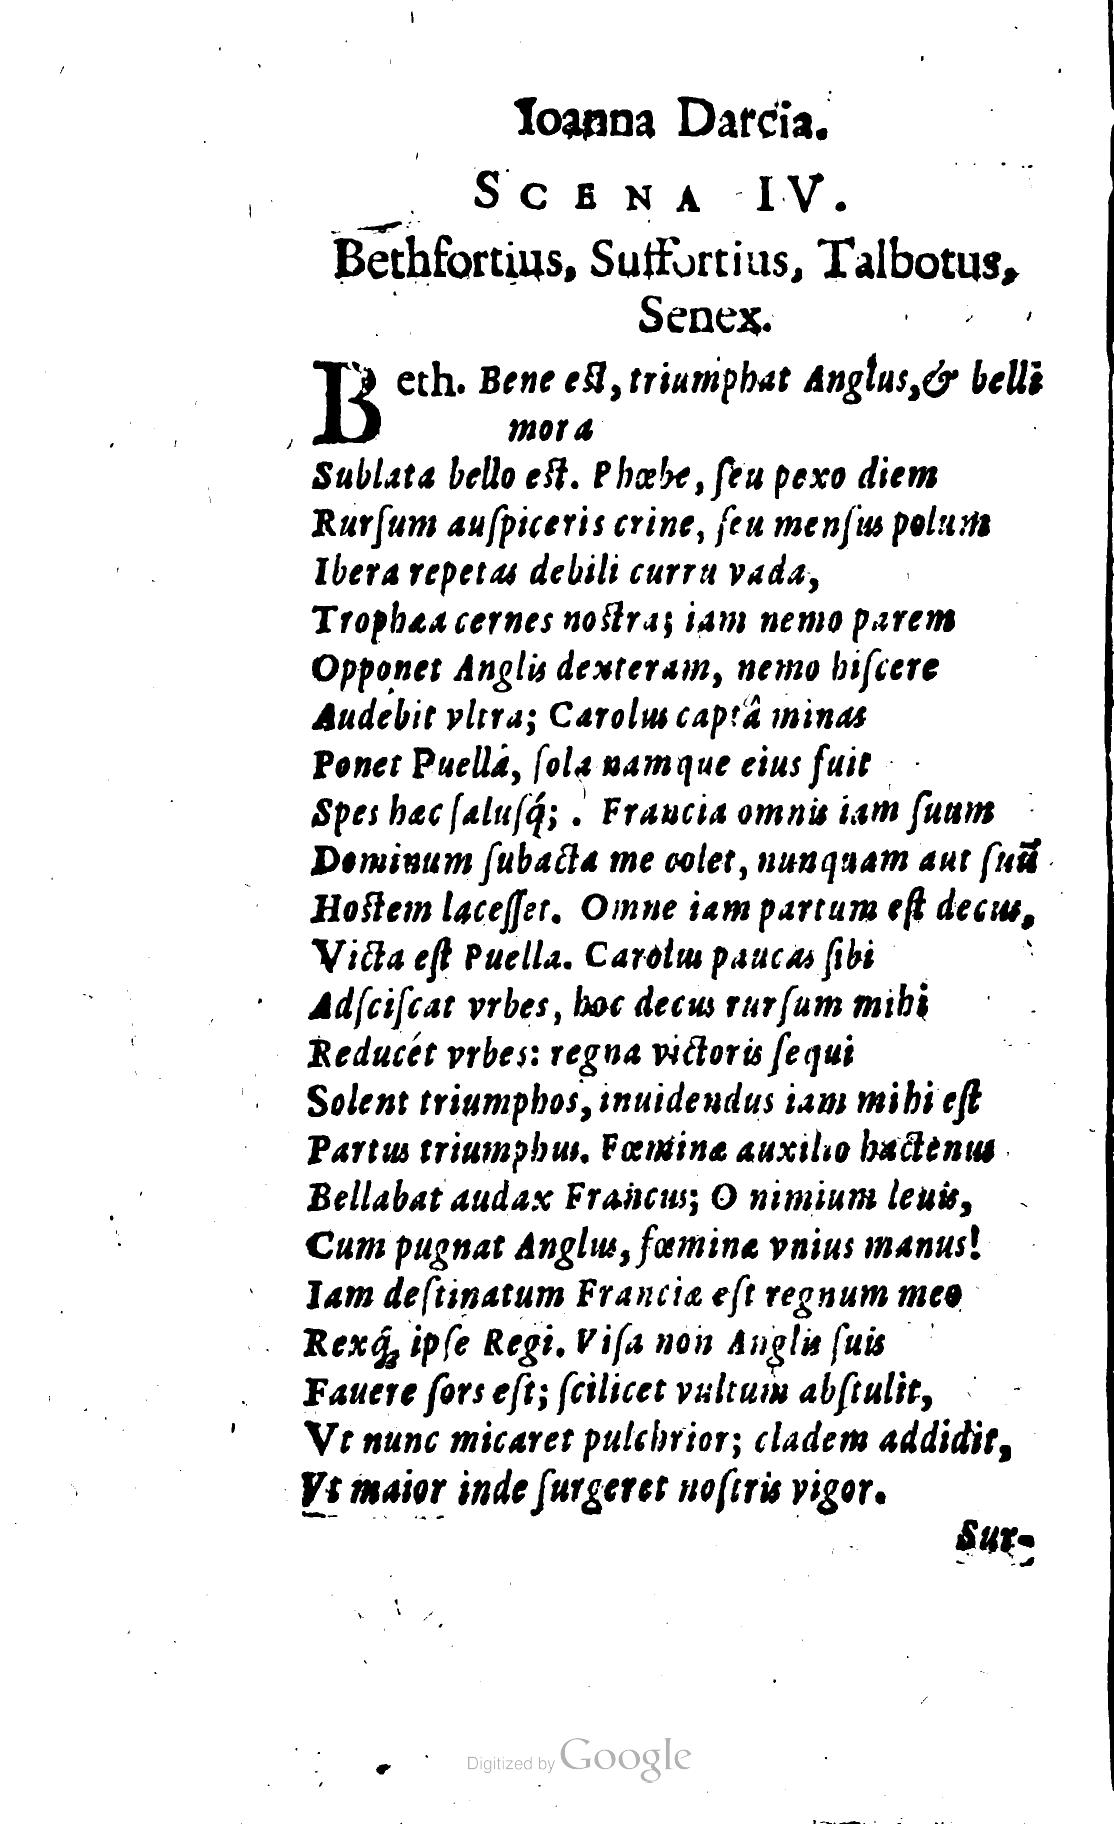 Ioanna Darcia.
SCENA IV.
Bethfortius, Suffortius, Talbotus,
Senex.
Beth. Bene eſt, triumphat Anglus, & belli
mora
Sublata bello eſt. Phœbe, ſeu pexo diem
Rurſum auſpiceris crine, ſeu menſus polum
Ibera repetas debili curru vada,
Trophæa cernes noſtra; iam nemo parem
Opponet Anglis dexteram, nemo hiſcere
Audebit vltra; Carolus captâ minas
Ponet Puellá, ſola namque eius fuit
Spes hæc ſaluſq́; . Francia omnis iam ſuum
Dominum ſubacta me colet, nunquam aut ſuū
Hoſtem laceſſet. Omne iam partum eſt decus,
Victa eſt Puella. Carolus paucas ſibi
Adſciſcat vrbes, hoc decus rurſum mihi
Reducét vrbes: regna victoris ſequi
Solent triumphos, inuidendus iam mihi eſt
Partus triumphus. Fœminæ auxilio hactenus
Bellabat audax Francus; O nimium leuis,
Cum pugnat Anglus, fœminæ vnius manus!
Iam deſtinatum Franciæ eſt regnum meo
Rexq́; ipſe Regi. Viſa non Anglis ſuis
Fauere ſors eſt; ſcilicet vultum abſtulit,
Vt nunc micaret pulchrior; cladem addidit,
Vt maior inde ſurgeret noſtris vigor.
Sur-
Digitized by Google